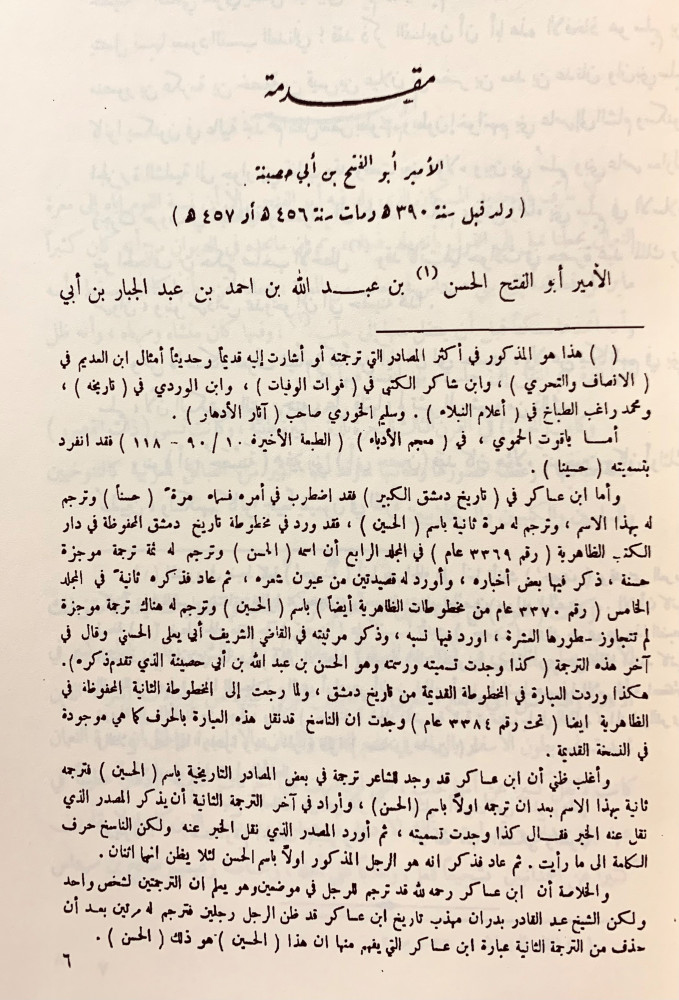 مقدمة
الأمير أبو الفتح بن أبي حصينة
( ولد قبل سنة ٣٩٠ ه ومات سنة ٤٥٦ ه أو ٤٥٧ ه )
الأمير أبو الفتح الحسن (١) بن عبد الله بن احمد بن عبد الجبار بن أبي
( ) هذا هو المذكور في أكثر المصادر التي ترجمته أو أشارت إليه قديماً وحديثاً أمثال ابن العديم في
( الانصاف والتحري ) ، وابن شاكر الكتبي في ( فوات الوفيات ) ، وابن الوردي في ( تاريخه ) ،
ومحمد راغب الطباخ في ( أعلام النبلاء ) . وسليم الخوري صاحب ( آثار الأدهار ) .
أما ياقوت الحموي ، في ( معجم الأدباء ) ( الطبعة الأخيرة ١٠ / ٩٠ - ١١٨ ) فقد انفرد
بتسميته ( حسينا ) .
وأما ابن عساكر في ( تاريخ دمشق الكبير ) فقد اضطرب في أمره فسماه مرة ( حسناً ) وترجم
له بهذا الاسم ، وترجم له مرة ثانية باسم ( الحسين ) ، فقد ورد في مخطوطة تاريخ دمشق المحفوظة في دار
الكتب الظاهرية ( رقم ٣٣٦٩ عام ) في المجلد الرابع أن اسمه ( الحسن ) وترجم له ثمة ترجمة موجزة
حسنة ، ذكر فيها بعض أخباره ، وأورد له قصيدتين من عيون شعره ، ثم عاد فذكره ثانية في المجلد
الخامس ( رقم ٣٣٧٠ عام من مخطوطات الظاهرية أيضاً ) باسم ( الحسين ) وترجم له هناك ترجمة موجزة
لم تتجاوز سطورها العشرة ، اورد فيها نسبه ، وذكر مرثيته في القاضي الشريف أبي يعلى الحسني وقال في
آخر هذه الترجمة ( كذا وجدت تسميته ورسمته وهو الحسن بن عبد الله بن أبي حصينة الذي تقدم ذكره ) .
هكذا وردت العبارة في المخطوطة القديمة من تاريخ دمشق ، ولما رجعت إلى المخطوطة الثانية المحفوظة في
الظاهرية ايضا ( تحت رقم ٣٣٨٤ عام ) وجدت ان الناسخ قد نقل هذه العبارة بالحرف كما هي موجودة
في النسخة القديمة .
وأغلب ظني أن ابن عساكر قد وجد للشاعر ترجمة في بعض المصادر التاريخية باسم ( الحسين ) فترجمه
ثانية بهذا الاسم بعد ان ترجمه اولاً باسم ( الحسن ) ، وأراد في آخر الترجمة الثانية أن يذكر المصدر الذي
نقل عنه الخبر فقال كذا وجدت تسميته ، ثم أورد المصدر الذي نقل الخبر عنه ولكن الناسخ حرف
الكلمة الى ما رأيت . ثم عاد فذكر انه هو الرجل المذكور اولاً باسم الحسن لئلا يظن انهما اثنان .
والخلاصة أن ابن عساكر رحمه لله قد ترجم للرجل في موضعين وهو يعلم ان الترجمتين لشخص واحد
ولكن الشيخ عبد القادر بدران مهذب تاريخ ابن عساكر قد ظن الرجل رجلين فترجم له مرتين بعد أن
حذف من الترجمة الثانية عبارة ابن عساكر التي يفهم منها ان هذا ( الحسين ) هو ذلك ( الحسن ) .
٦